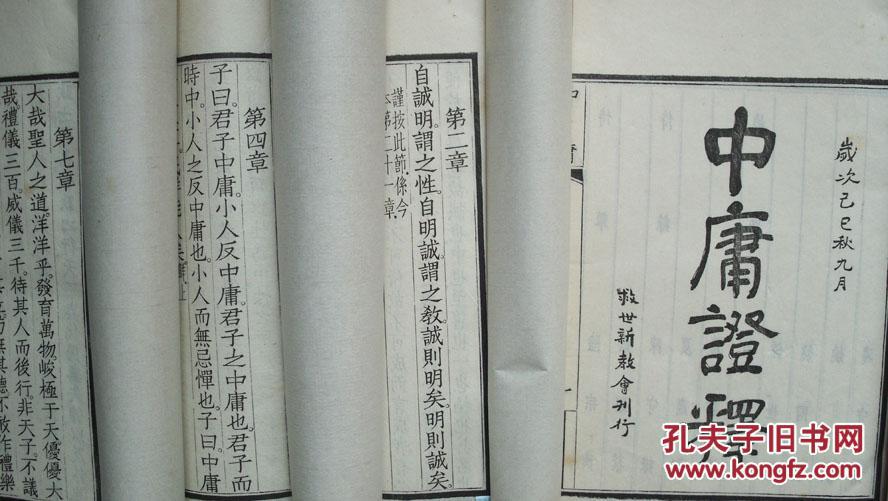 歲次己巳秋九月
中庸證釋
救世新教會刊行
第二章
自誠明。謂之性。自明誠。謂之教。誠則明矣。明則誠矣。
謹按此節。係今
本第二十一章。
第四章
子曰。君子中庸。小人反中庸。君子之中庸也。君子而
時中。小人之反中庸也。小人而無忌憚也。子曰。中庸
第七章
大哉聖人之道。洋洋乎。發育萬物。峻極于天。優優大
哉。禮儀三百。威儀三千。待其人而後行。非天子。不議
無其德。不敢作禮樂
孔夫子旧书网
www.kongfz.com